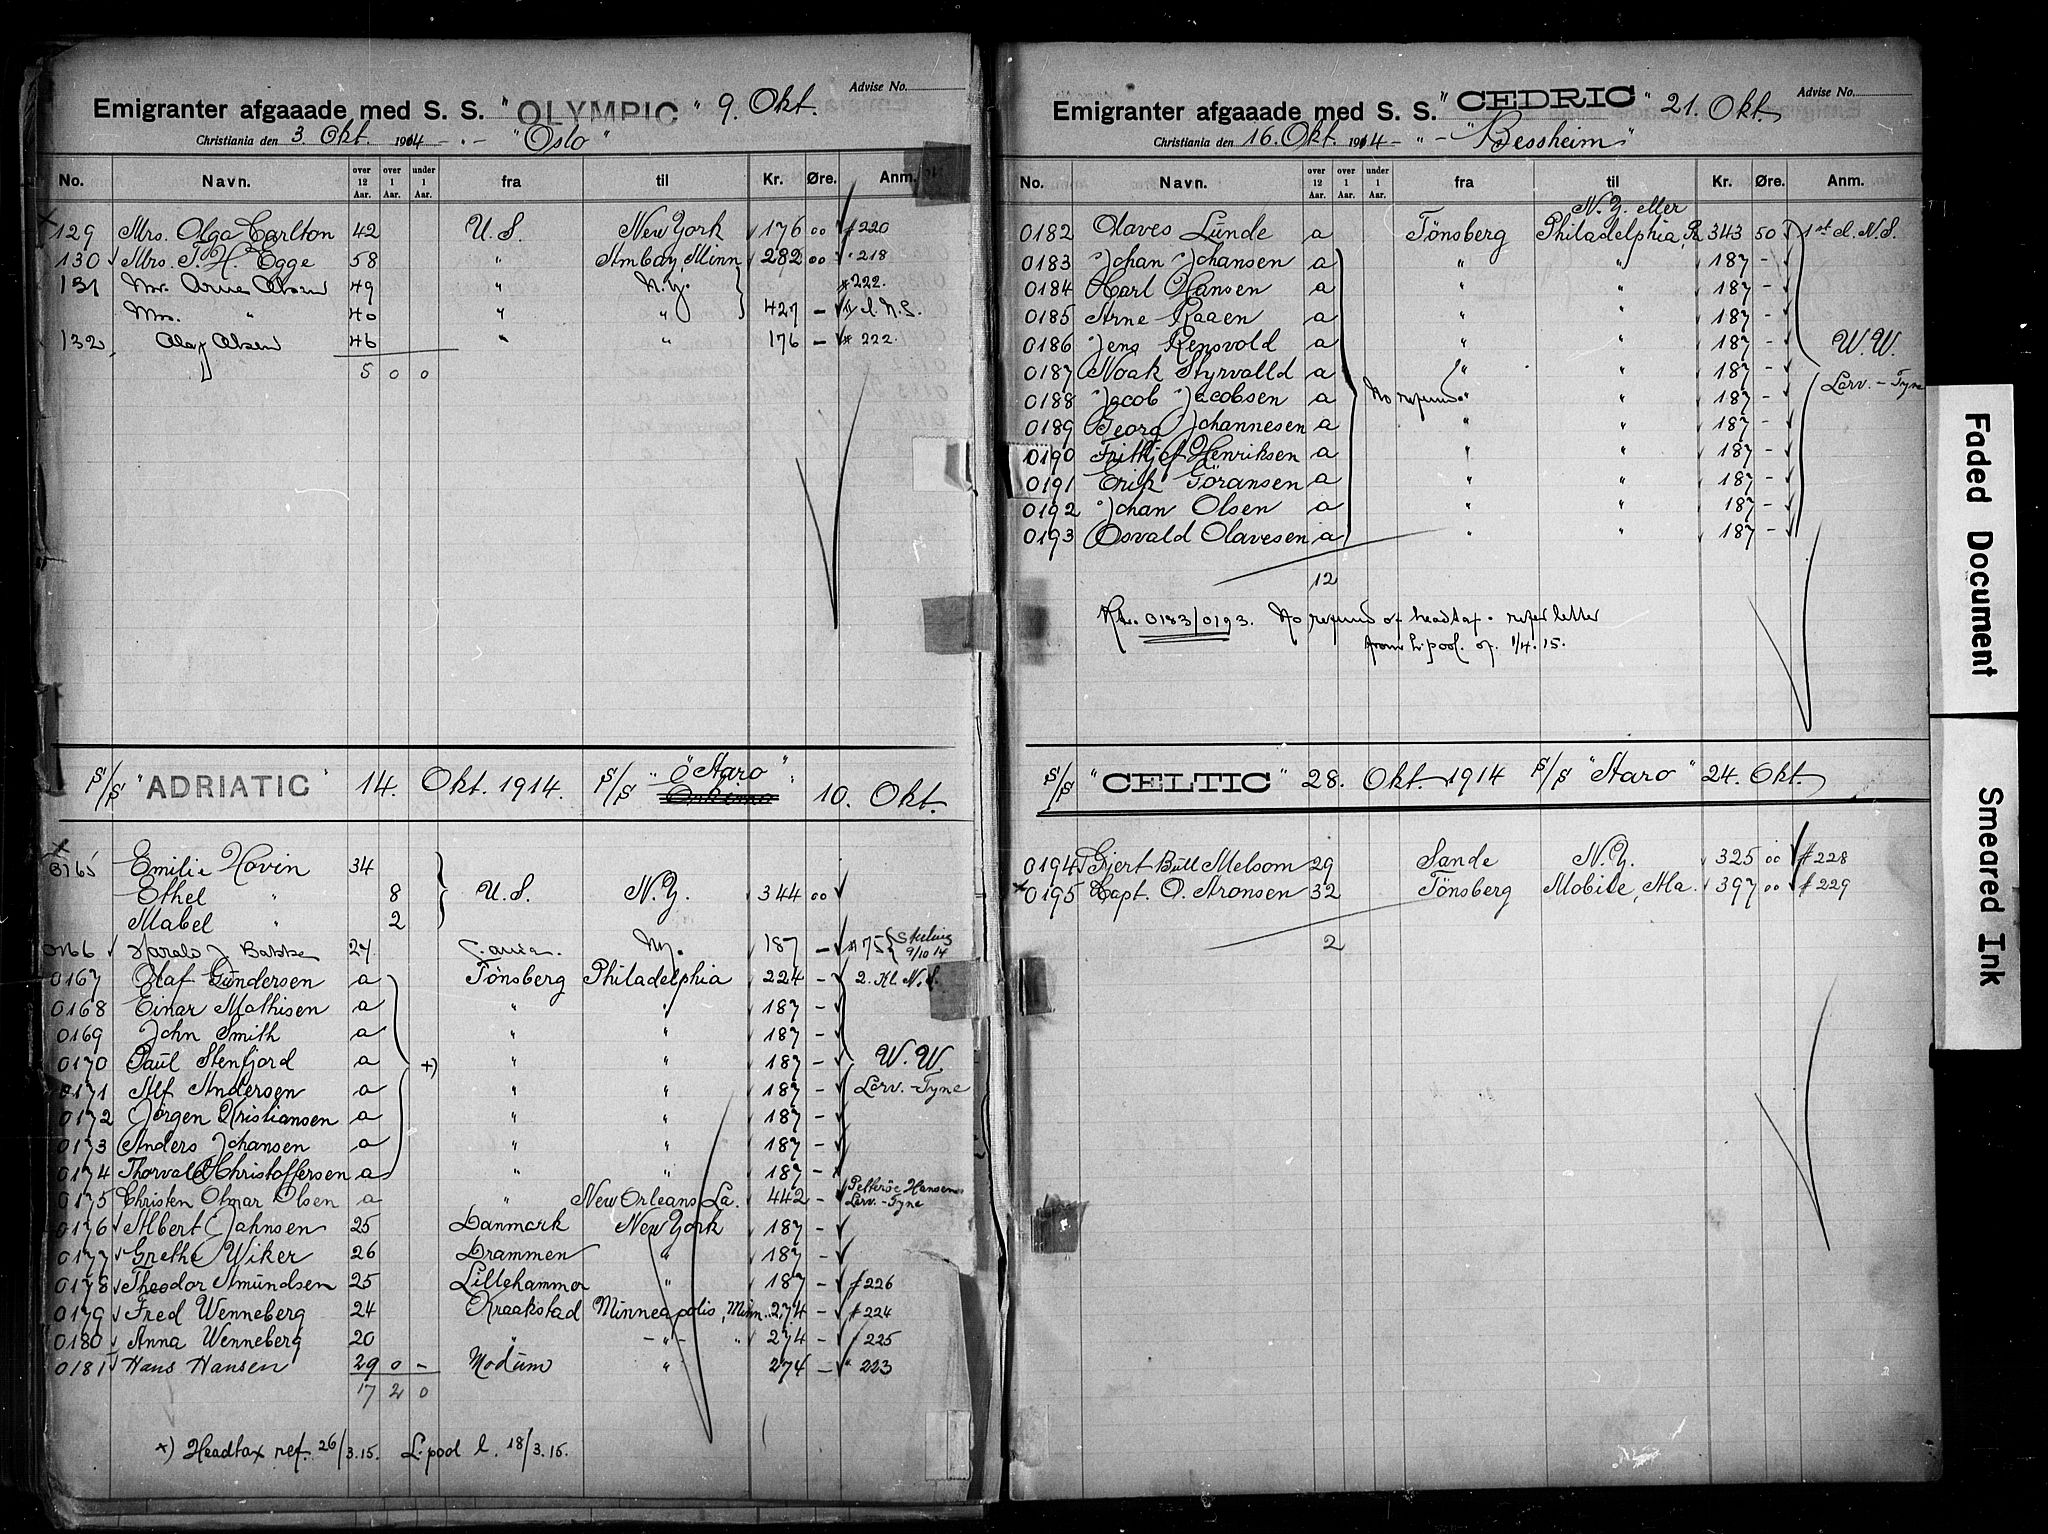 Advise No.
Emigranter afgaaade med S. S. "OLYMPIC" 9. Okt.
Christiania den 3. Okt. 1914 - " - "Oslo"
No. Navn. over 12 Aar. over 1 Aar. under 1 Aar. fra til Kr. Øre. Anm.
129 Mrs. Olga Carlton 42 U. S. New York 176 00 # 220
130 Mrs. T. H. Egge 58 " Amboy, Minn 282 00 " 218
131 Mr. Arne Olsen 49 " N.Y. # 222.
Mrs. " 40 " " 427 - II cl. N.S.
132 Olaf Olsen 46 " " 176 - # 222.
5 0 0
S/S "ADRIATIC" 14. Okt. 1914. S/S "Aaro" 10. Okt.
3165 Emilie Hovin 34
Ethel " 8 U. S. N.Y. 344 00
Mabel " 2
0166 Harald J Bakke 27 N.Y. 187 - # 75 Sterling 9/10 14
0167 Olaf Gundersen a Tönsberg Philadelphia 224 - 2. Kl. N.S.
0168 Einar Mathisen a " " 187 -
0169 John Smith a " " 187 -
0170 Paul Stenfjord a +) " " 187 - W.W.
0171 Alf Andersen a " " 187 - Larv. - Tyne
0172 Jörgen Kristiansen a " " 187 -
0173 Anders Johansen a " " 187 -
0174 Thorvald Christoffersen a " " 187 -
0175 Christen Otmar Olsen a " New Orleans La. 442 - Petterøe Hansen Larv. - Tyne
0176 Albert Jahnsen 25 Danmark New York 187 -
0177 Grethe Wiker 26 Drammen " 187 -
0178 Theodor Amundsen 25 Lillehammer " 187 - # 226
0179 Fred Wenneberg 24 Kraakstad Minneapolis, Minn. 274 - # 224
0180 Anna Wenneberg 20 " - " - " 274 - " 225
0181 Hans Hansen 29 0 - Modum " 274 - " 223
17 2 0
x) Headtax ref. 26/3.15. L.pool l. 18/3.15.
Advise No.
Emigranter afgaaade med S. S. "CEDRIC" 21. Okt.
Christiania den 16. Okt. 1914 - " - "Bessheim"
No. Navn. over 12 Aar. over 1 Aar. under 1 Aar. fra til Kr. Øre. Anm.
N.Y. eller
0182 Olaves Lunde a Tönsberg Philadelphia, Pa 343 50 1st cl. N.S.
0183 Johan Johansen a " " 187 -
0184 Karl Hansen a " " 187 -
0185 Arne Raaen a " " 187 -
0186 Jens Rensvold a " " 187 - W.W.
0187 Noak Styrvalld a " " 187 - Larv. - Tyne
0188 Jacob Jacobsen a No refund " " 187 -
0189 Georg Johannesen a " " 187 -
0190 Frithjof Henriksen a " " 187 -
0191 Erik Göransen a " " 187 -
0192 Johan Olsen a " " 187 -
0193 Osvald Olavesen a " " 187 -
12
Kts. 0183/0193. No refund of headtax. refer letter
from L'pool. of. 1/4. 15.
S/S "CELTIC" 28. Okt. 1914 S/S "Aaro" 24. Okt.
0194 Gjert Bull Melsom 29 Sande N.Y. 325 00 # 228
0195 Capt. O. Aronsen 32 Tönsberg Mobile, Ala. 397 00 # 229
2
Faded Document
Smeared Ink